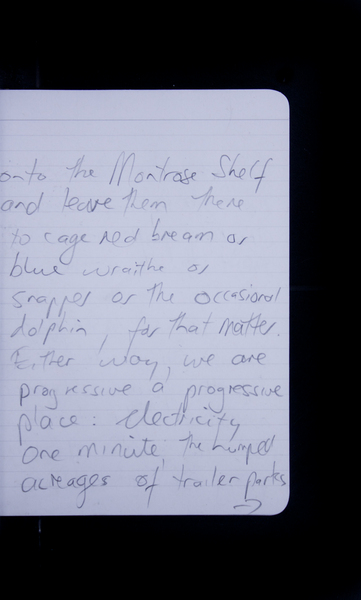 onto the Montrose Shelf
and leave them there
to cage red bream or
blue wraithe or
snapper or the occasional
dolphin, for that matter.
Either way, we are
progressive a progressive
place: electricity
one minute, the humped
acreages of trailer parks
→